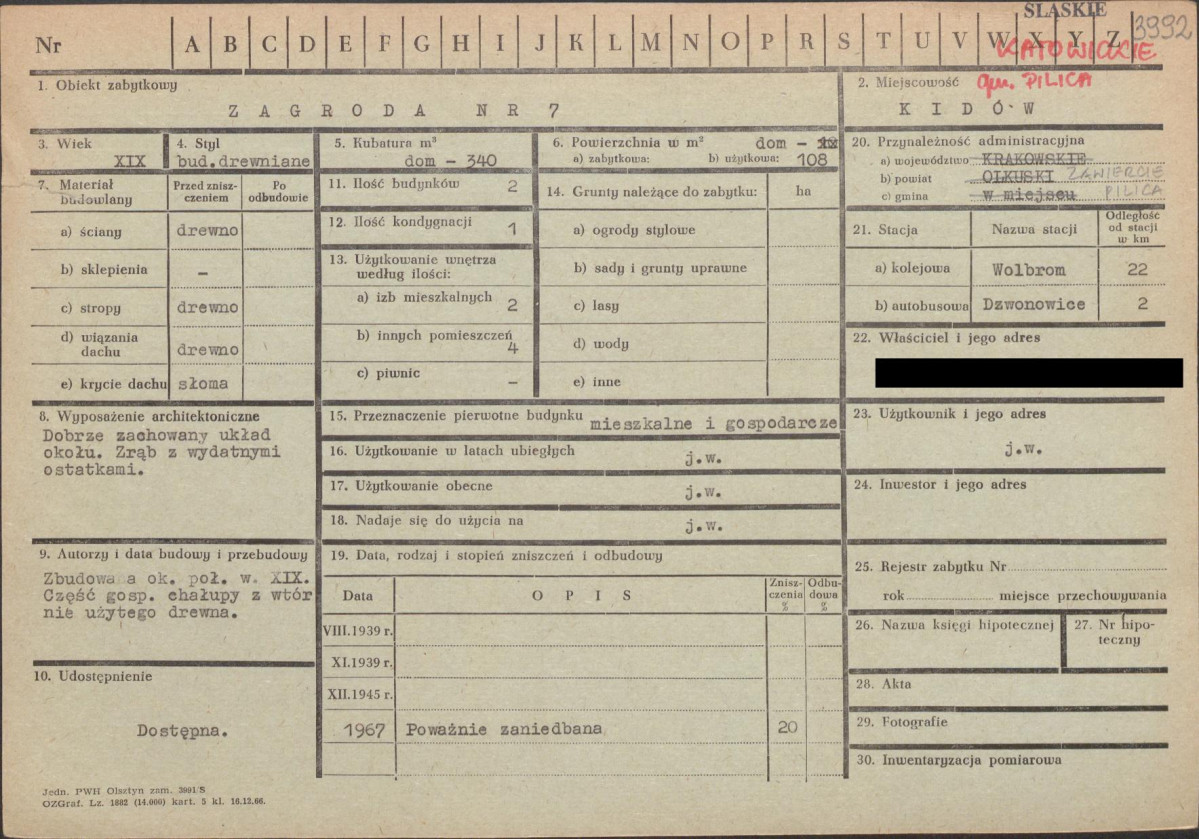 ŚLĄSKIE
3992
Nr A B C D E F G H I J K L M N O P R S T U V W X Y Z
KATOWICKIE
gm. PILICA
1. Obiekt zabytkowy
ZAGRODA NR 7
2. Miejscowość
KIDÓW
3. Wiek
XIX
4. Styl
bud.drewniane
5. Kubatura m³
dom - 340
6. Powierzchnia w m² dom -
a) zabytkowa: b) użytkowa: 108
7. Materiał budowlany
Przed zniszczeniem
Po odbudowie
a) ściany drewno
b) sklepienia -
c) stropy drewno
d) wiązania dachu drewno
e) krycie dachu słoma
8. Wyposażenie architektoniczne
Dobrze zachowany układ
okołu. Zrąb z wydatnymi
ostatkami.
9. Autorzy i data budowy i przebudowy
Zbudowa a ok. poł. w. XIX.
Część gosp. chałupy z wtór
nie użytego drewna.
10. Udostępnienie
Dostępna.
11. Ilość budynków 2
12. Ilość kondygnacji 1
13. Użytkowanie wnętrza
według ilości:
a) izb mieszkalnych 2
b) innych pomieszczeń 4
c) piwnic -
14. Grunty należące do zabytku: ha
a) ogrody stylowe
b) sady i grunty uprawne
c) lasy
d) wody
e) inne
15. Przeznaczenie pierwotne budynku mieszkalne i gospodarcze
16. Użytkowanie w latach ubiegłych j.w.
17. Użytkowanie obecne j.w.
18. Nadaje się do użycia na j.w.
19. Data, rodzaj i stopień zniszczeń i odbudowy
Data OPIS Zniszczenia % Odbudowa %
VIII.1939 r.
XI.1939 r.
XII.1945 r.
1967 Poważnie zaniedbana 20
20. Przynależność administracyjna
a) województwo KRAKOWSKIE
b) powiat OLKUSKI ZAWIERCIE
c) gmina w miejscu PILICA
21. Stacja Nazwa stacji Odległość od stacji w km
a) kolejowa Wolbrom 22
b) autobusowa Dzwonowice 2
22. Właściciel i jego adres
23. Użytkownik i jego adres
j.w.
24. Inwestor i jego adres
25. Rejestr zabytku Nr
rok miejsce przechowywania
26. Nazwa księgi hipotecznej
27. Nr hipoteczny
28. Akta
29. Fotografie
30. Inwentaryzacja pomiarowa
Jedn. PWH Olsztyn zam. 3991/S
OZGraf. Lz. 1882 (14.000) kart. 5 kl. 16.12.66.